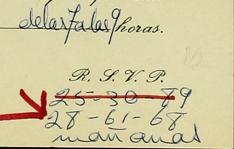 de las 7 a las 9 horas.
R. S. V. P.
25-30-89
28-61-68
mañanas